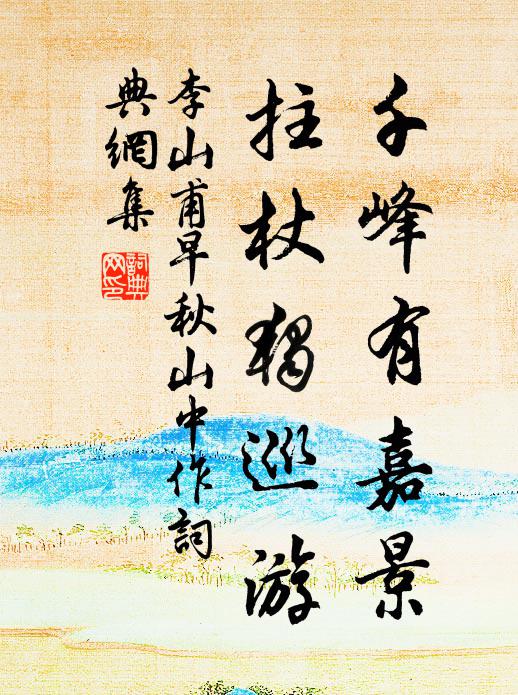 千峰有嘉景
拄杖獨巡游
李山甫早秋山中作詞
典網集
詞典
网印